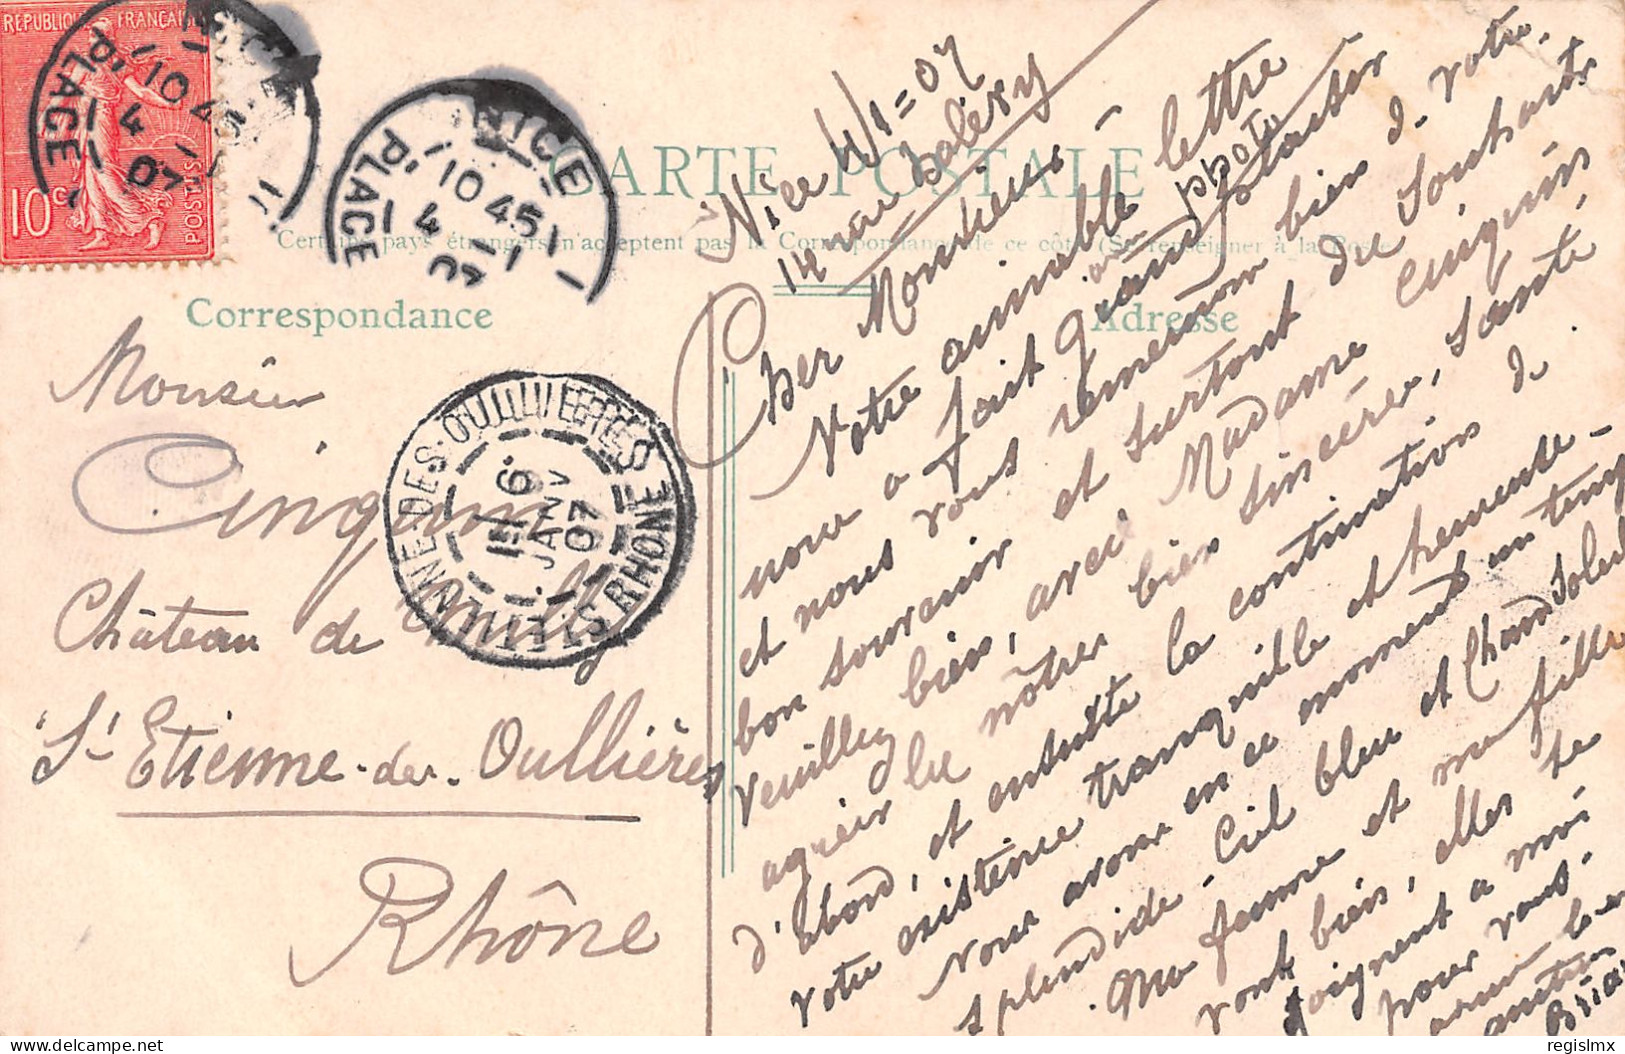 RÉPUBLIQUE FRANÇAISE
10c
POSTES
NICE
PL. PLACE
10 45
4 - 1
07
NICE
PL. PLACE
10 45
4 - 1
07
CARTE POSTALE
Certains pays étrangers n'acceptent pas la Correspondance de ce côté (Se renseigner à la Poste)
Correspondance
Adresse
Monsieur
Cinquin
Château de
St Etienne-des-Oullières
Rhône
ST ETIENNE DES OULLIÈRES
RHÔNE
6
JANV
07
Nice 4/1=07
14 rue Daléry
Cher Monsieur
Votre aimable lettre
nous a fait grand plaisir
photo
et nous vous remercions bien de votre
bon souvenir et surtout du souhait
veuillez bien, avec Madame Cinquin
agréer les nôtres bien sincères, santé
d'abord, et ensuite la continuation de
votre existence tranquille et heureuse -
nous avons en ce moment un temps
splendide - Ciel bleu et Chaud Soleil
Ma femme et ma fille
vont bien, elles se
joignent à moi
pour vous